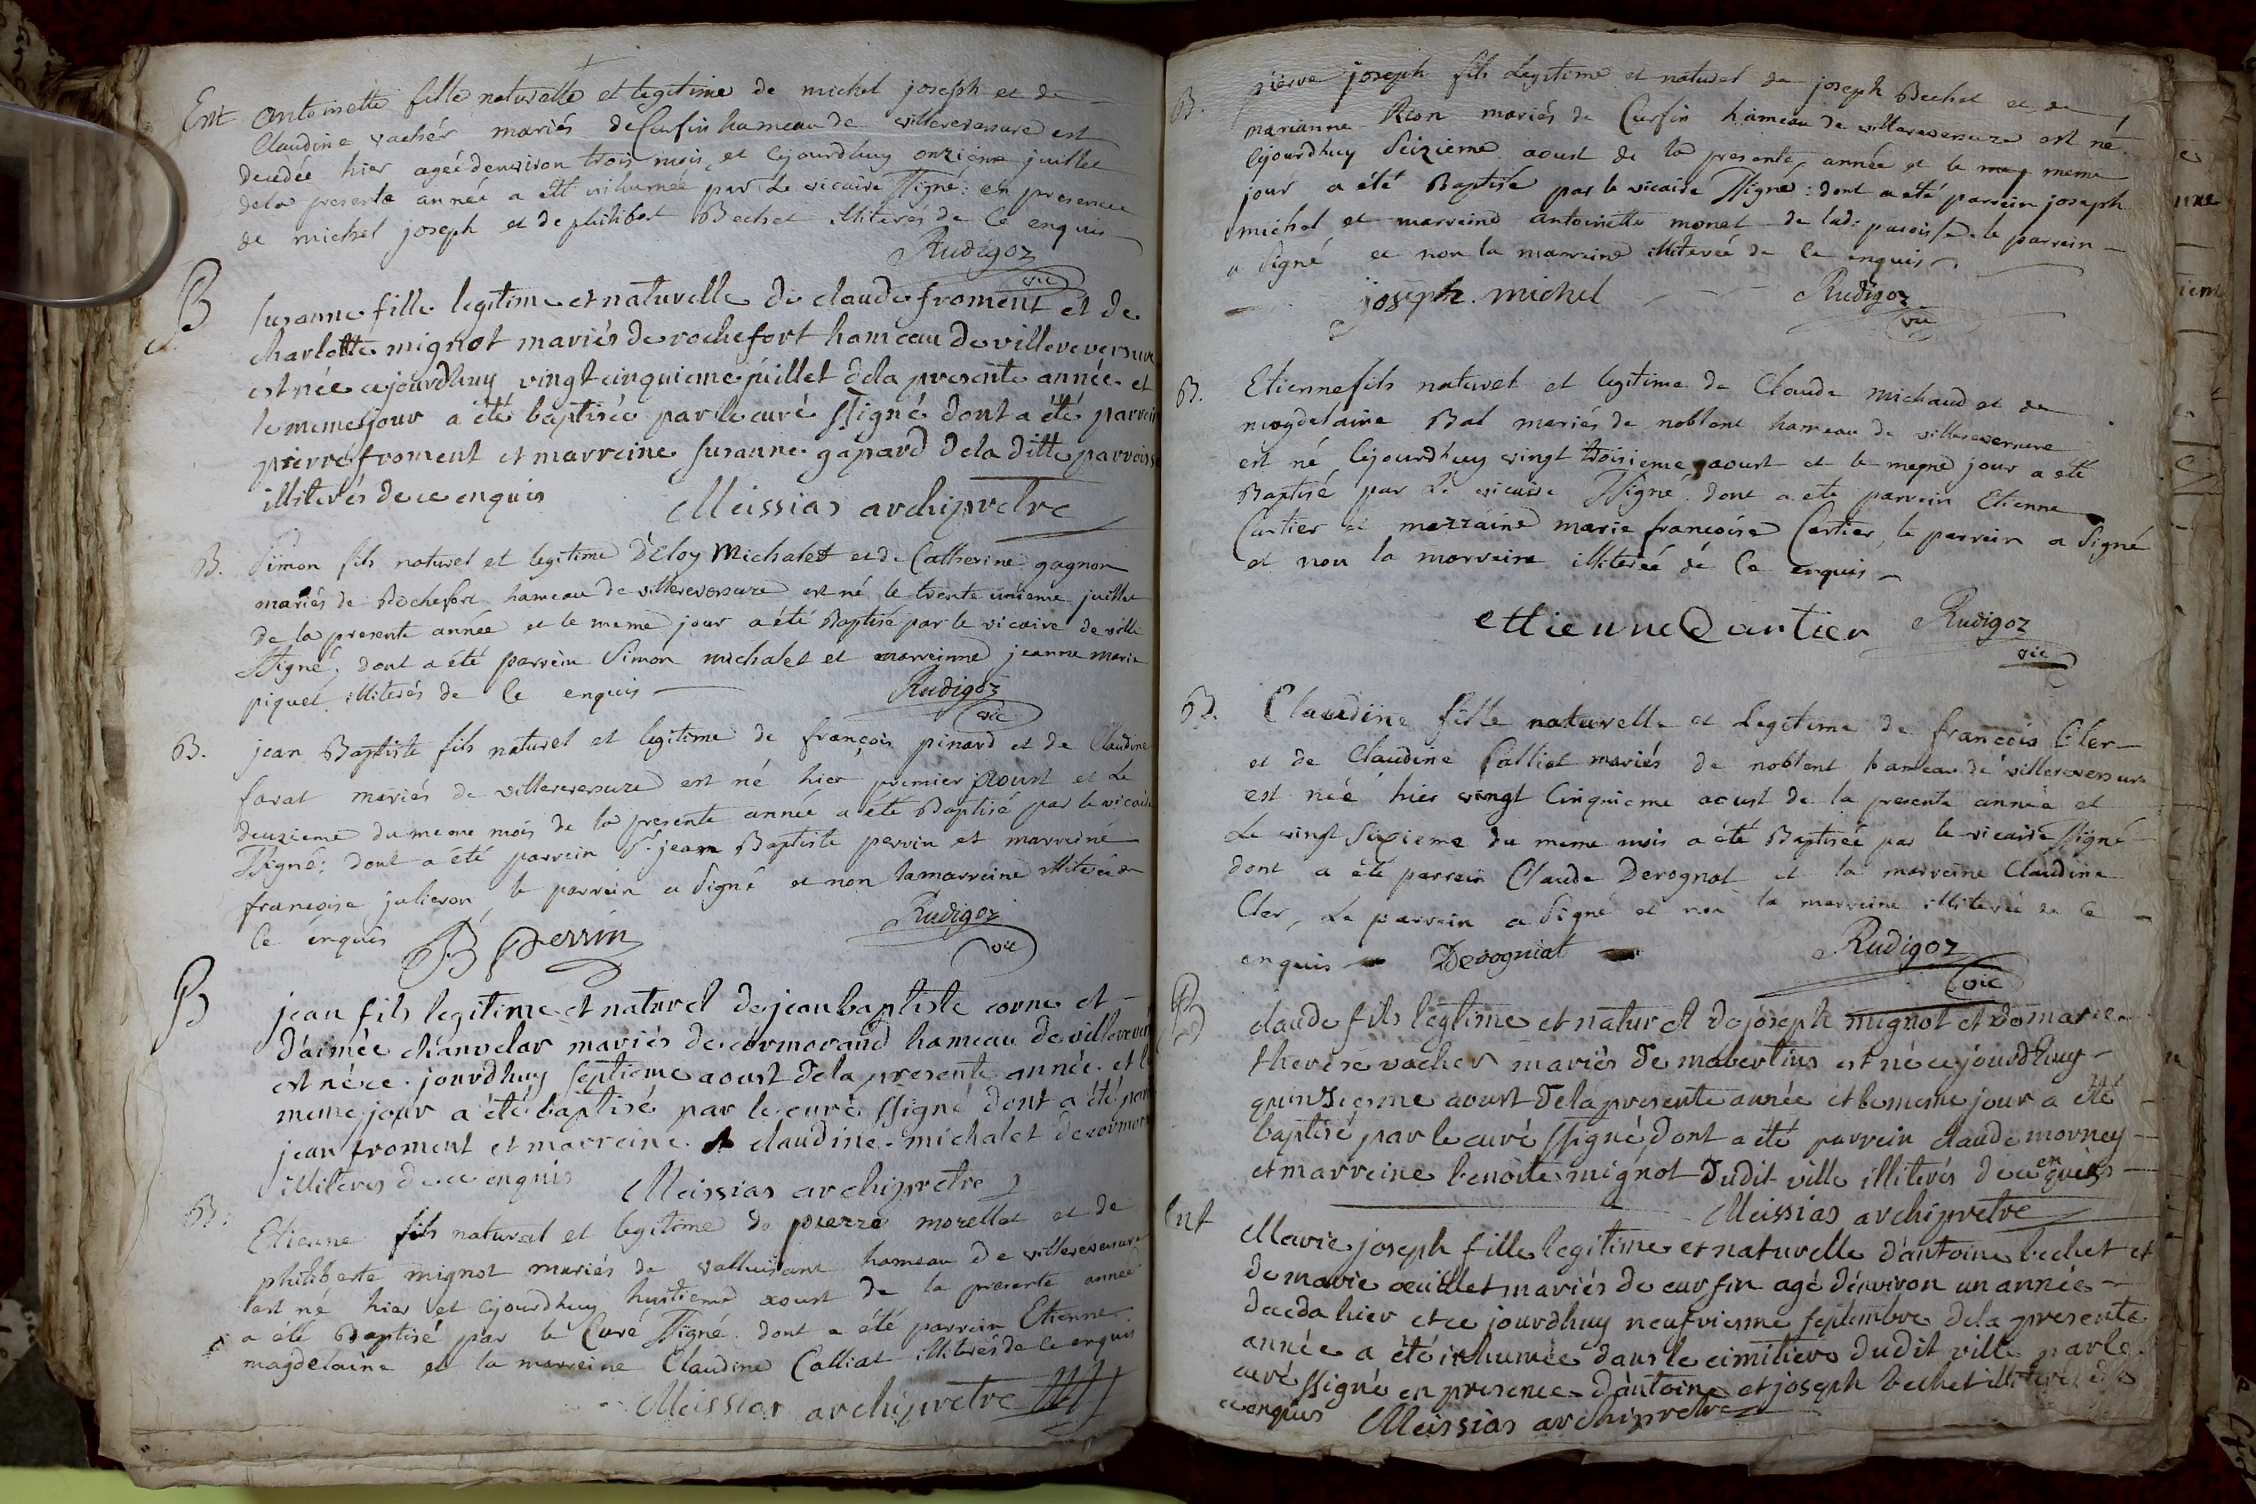 Ent Antoinette fille naturelle et legitime de michel joseph et de
Claudine vachér mariés de Curfin hameau de villereversure est
decédée hier agée denviron trois mois, et cejourdhuy onzieme juillet
dela presente année a été inhumée par Le vicaire ssigné: en presence
de michel joseph et de philibert Bechet illiterés de Ce enquis
Rudigoz
vic
B susanne fille legitime et naturelle de claude froment et de
charlotte mignot mariés de rochefort hameau de villereversure
est née cejourdhuy vingt cinquieme juillet dela presente année et
le meme jour a été baptisée par le curé ssigné dont a été parrein
pierre froment et marreine susanne gapard dela ditte parroisse
illiterés de ce enquis Meissias archipretre
B. Simon fils naturel et legitime D'eloy Michalet et de Catherine gagnon
mariés de Rochefort hameau de villereversure est né le trente unieme juillet
de la presente année et le meme jour a été Baptisé par le vicaire de ville
ssigné; dont a été parrein Simon michalet et marreinne jeanne marie
piquet illiterés de Ce enquis Rudigoz
vic
B. jean Baptiste fils naturel et legitime de françois pinard et de Claudine
favat mariés de villereversure est né hier premier aoust et Le
deuzieme du meme mois de la presente année a été Baptisé par le vicaire
ssigné; dont a été parrein Sr. jean Baptiste perrin et marreine
françoise julieron, le parrein a signé et non lamarreine illiterée de
Ce enquis B Perrin Rudigoz
vic
B jean fils legitime et naturel de jean baptiste corne et
d'aimée chanvelar mariés de cormorand hameau de villerever
est né ce jourdhuy septieme aoust dela presente année et l
meme jour a été baptisé par le curé ssigné dont a été par
jean froment et marreine claudine michalet de cormor
illiteres de ce enquis Meissias archipretre
B. Etienne fils naturel et legitime de pierre morellet et de
philiberte mignot mariés de valluisant hameau de villereversure
est né hier et cejourdhuy huitieme aoust de la presente année
a été Baptisé par le Curé ssigné dont a été parrein Etienne
magdelaine et la marreine Claudine Calliat illiterés de Ce enquis
Meissias archipretre
B. pierre joseph fils Legitime et naturel de joseph Bechet et de
marianne Rion mariés de Curfin hameau de villereversure est né
cejourdhuy seizieme aoust de la presente année et le meme
jour a été Baptisé par le vicaire ssigné: dont a été parrein joseph
michel et marreine antoinette monet de lad. paroisse le parrein
a signé et non la marreine illiterée de Ce enquis
joseph. michel Rudigoz
vic
B. Etienne fils naturel et legitime de Claude michaud et de
magdelaine Bal mariés de noblent hameau de villereversure
est né Cejourdhuy vingt troisieme aoust et le meme jour a été
Baptisé par Le vicaire ssigné dont a eté parrein Etienne
Cartier et marraine marie françoise Cartier, le parrein a signé
et non la marreine illiterée de Ce enquis
ettienne Qartier Rudigoz
vic
B. Claudine fille naturelle et Legitime de françois Cler
et de Claudine Calliat mariés de noblent hameau de villereversure
est née hier vingt Cinquieme aoust de la presente année et
Le vingt sixieme du meme mois a été Baptisée par le vicaire ssigné
dont a été parrein Claude Devognat et la marreine Claudine
Cler, Le parrein a signé et non la marreine illiterée de Ce
enquis Devogniat Rudigoz
vic
B claude fils legitime et naturel de joseph mignot et de marie
therese vacher mariés de mabertius est né ce jourdhuy
quinsiesme aoust dela presente année et le meme jour a été
baptisé par le curé ssigné, dont a été parrein claude morney
et marreine benoite mignot dudit ville illiterés de ce enquis
Meissias archipretre
Ent Marie joseph fille legitime et naturelle d'antoine bechet et
de marie œuillet mariés de curfin agé d'environ un année
deceda hier et ce jourdhuy neufviesme septembre dela presente
année a été inhumée dans le cimitiere dudit ville par le
curé ssigné en presence d'antoine et joseph bechet illiteres de
ce enquis Meissias archipretre